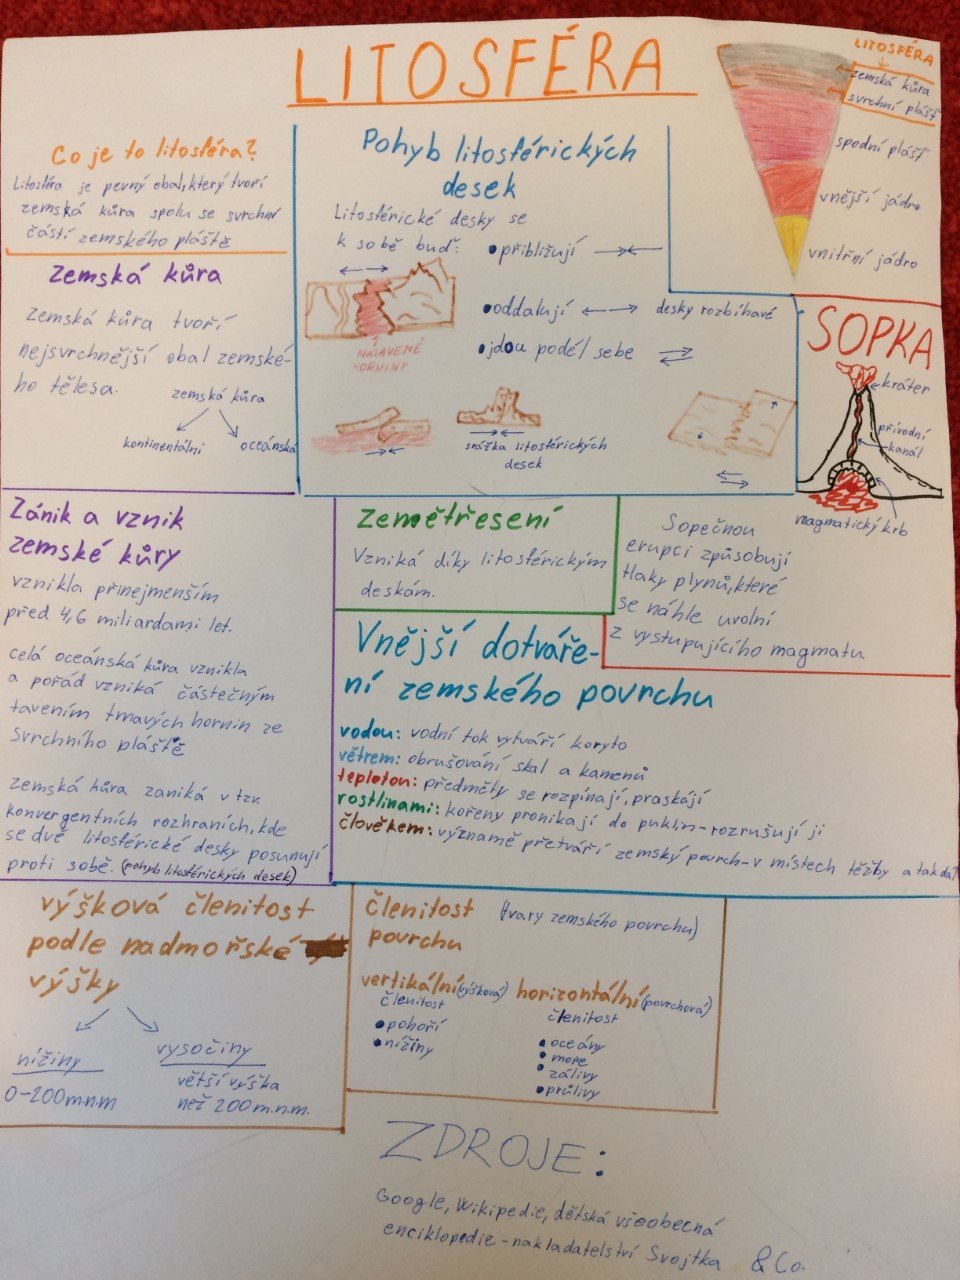 LITOSFÉRA
LITOSFÉRA
zemská kůra
svrchní plášť
spodní plášť
vnější jádro
vnitřní jádro
Co je to litosféra?
Litosféra je pevný obal, který tvoří
zemská kůra spolu se svrchní
částí zemského pláště
Zemská kůra
Zemská kůra tvoří
nejsvrchnější obal zemské-
ho tělesa.
zemská kůra
kontinentální
oceánská
Pohyb litosférických
desek
Litosférické desky se
k sobě buď:
•přibližují
•oddalují
desky rozbíhavé
•jdou podél sebe
NATAVENÉ
HORNINY
srážka litosférických
desek
SOPKA
kráter
přírodní
kanál
magmatický krb
Sopečnou
erupci způsobují
tlaky plynů, které
se náhle uvolní
z vystupujícího magmatu.
Zánik a vznik
zemské kůry
vznikla přinejmenším
před 4,6 miliardami let.
celá oceánská kůra vznikla
a pořád vzniká částečným
tavením tmavých hornin ze
svrchního pláště
zemská kůra zaniká v tzv.
konvergentních rozhraních, kde
se dvě litosférické desky posunují
proti sobě. (pohyb litosférických desek)
Zemětřesení
Vzniká díky litosférickým
deskám.
Vnější dotváře-
ní zemského povrchu
vodou: vodní tok vytváří koryto
větrem: obrušování skal a kamenů
teplotou: předměty se rozpínají, praskají
rostlinami: kořeny pronikají do puklin-rozrušují ji
člověkem: význámě přetváří zemský povrch-v místech těžby a tak dál
výšková členitost
podle nadmořské
výšky
nížiny
0-200m.n.m
vysočiny
větší výška
než 200m.n.m.
členitost
povrchu
(tvary zemského povrchu)
vertikální (výšková)
členitost
•pohoří
•nížiny
horizontální (povrchová)
členitost
•oceány
•moře
•zálivy
•průlivy
ZDROJE:
Google, Wikipedie, dětská všeobecná
enciklopedie-nakladatelství Svojtka & Co.